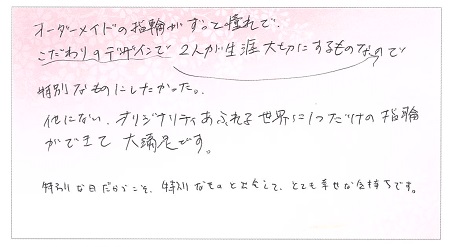 オーダーメイドの指輪がずっと憧れで、
こだわりのデザインで 2人が生涯大切にするものなので
特別なものにしたかった。
他にない、オリジナリティあふれる世界に1つだけの指輪
ができて 大満足です。
特別な日だからこそ、特別なものと出会えて、とても幸せな気持ちです。